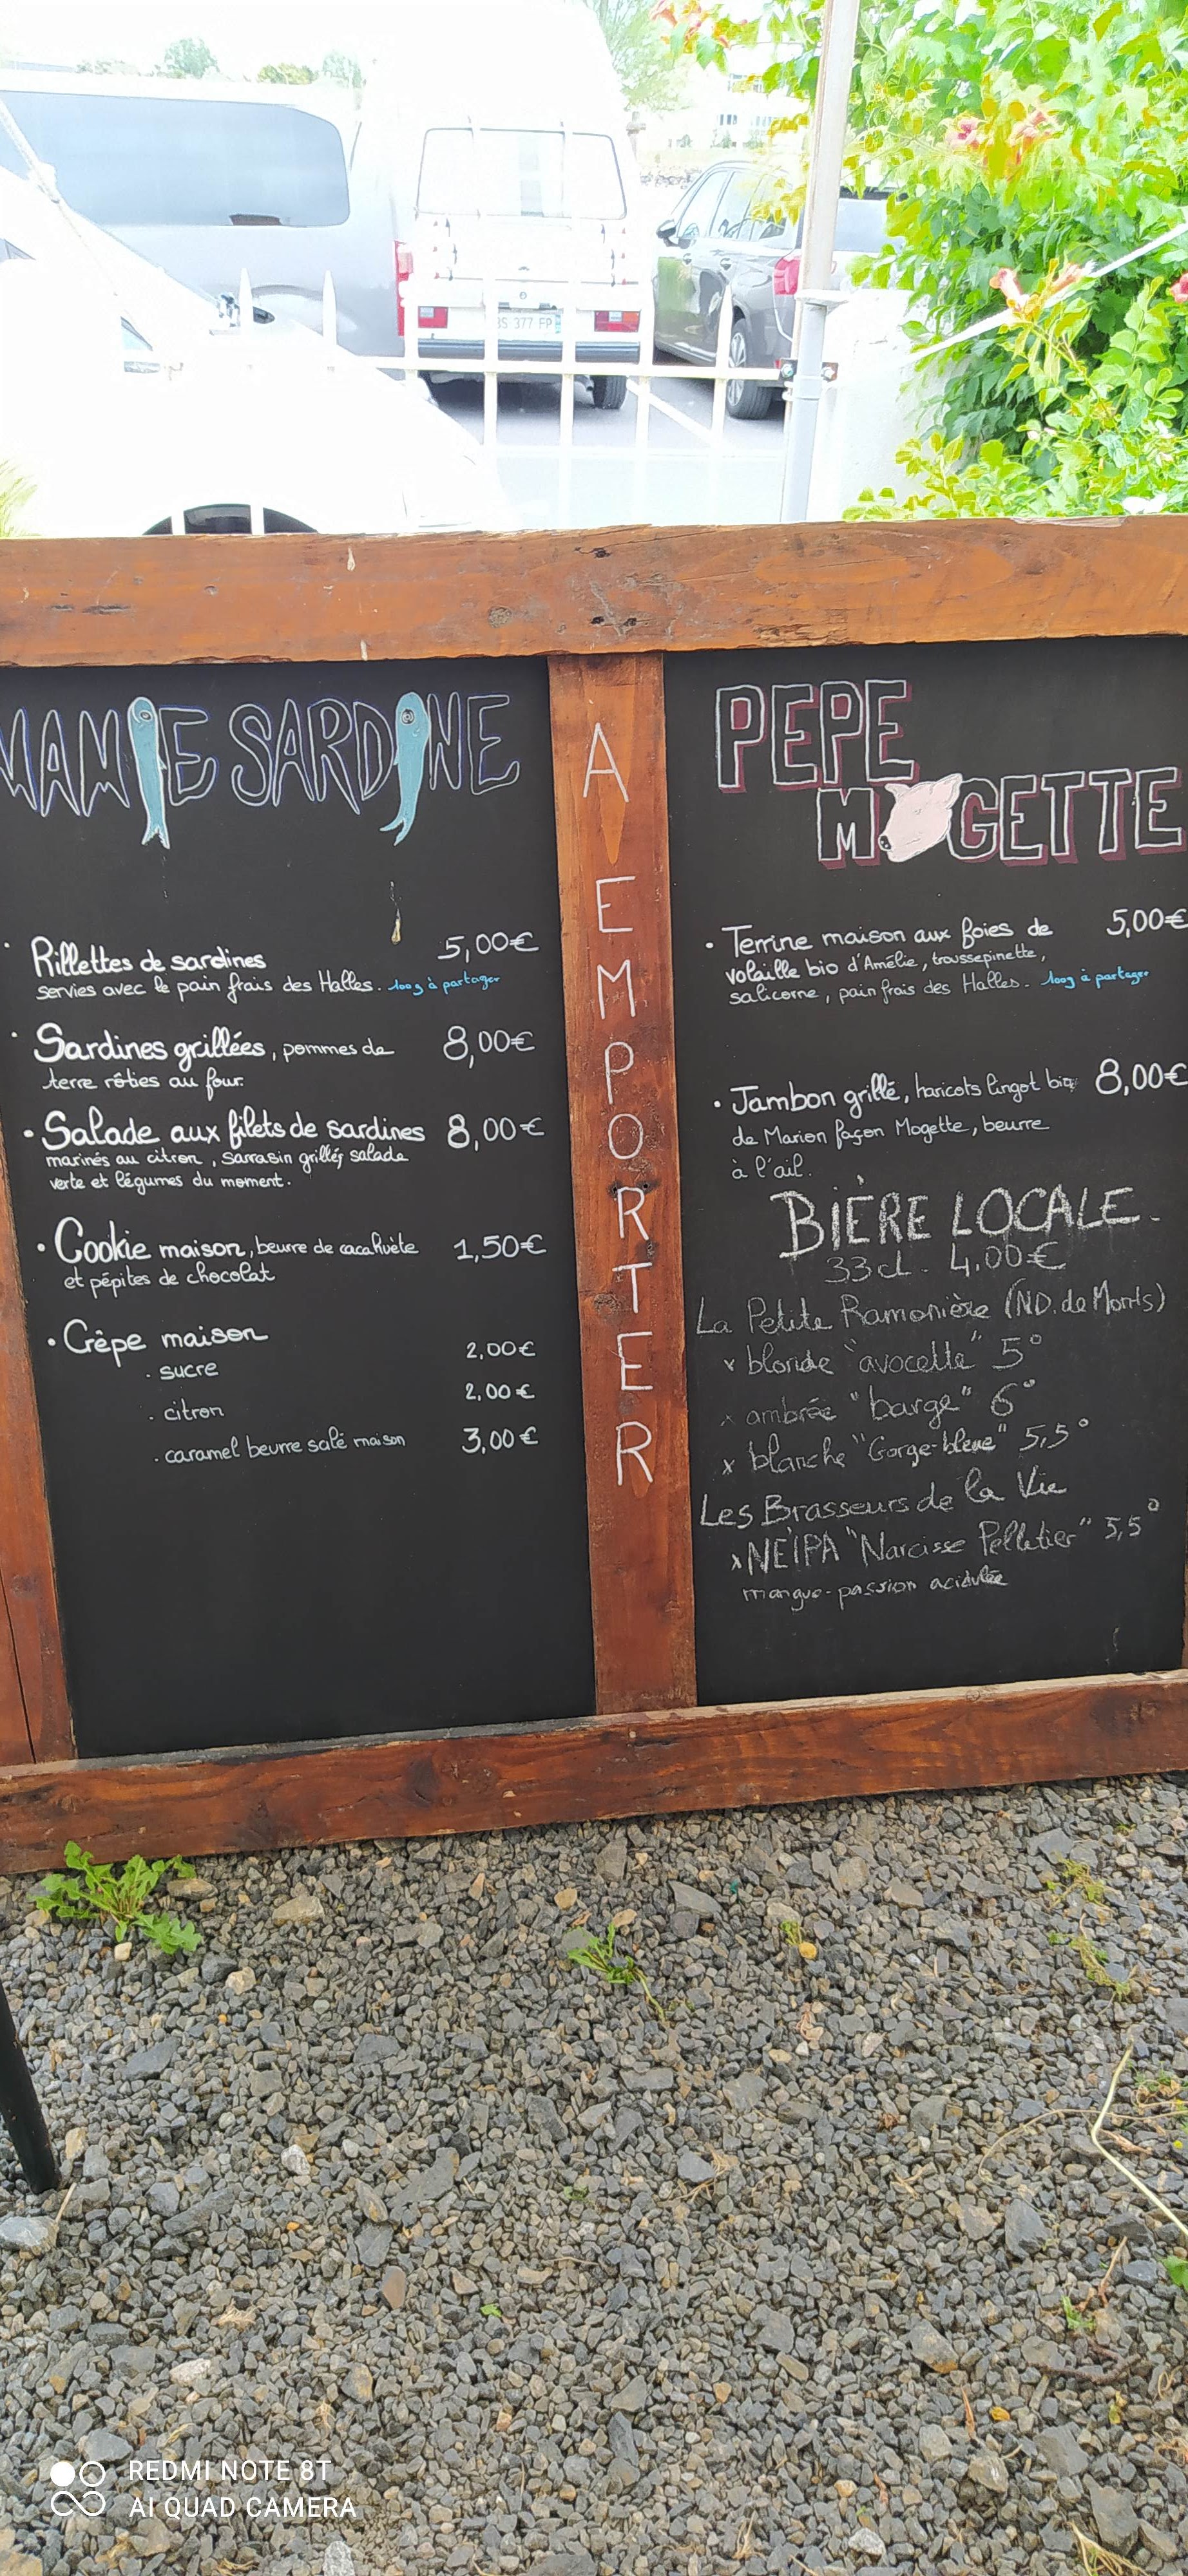 BS 377 FP
MAMIE SARDINE
• Rillettes de sardines 5,00€
servies avec le pain frais des Halles. 100g à partager
• Sardines grillées, pommes de 8,00€
terre rôties au four.
• Salade aux filets de sardines 8,00€
marinés au citron, sarrasin grillé, salade
verte et légumes du moment.
• Cookie maison, beurre de cacahuète 1,50€
et pépites de chocolat
• Crêpe maison
. sucre 2,00€
. citron 2,00€
. caramel beurre salé maison 3,00€
A EMPORTER
PEPE
MOGETTE
• Terrine maison aux foies de 5,00€
volaille bio d'Amélie, troussepinette,
salicorne, pain frais des Halles. 100g à partager
• Jambon grillé, haricots lingot bio 8,00€
de Marion façon Mogette, beurre
à l'ail.
BIÈRE LOCALE.
33cl. 4.00€
La Petite Ramonière (ND. de Monts)
x blonde "avocette" 5°
x ambrée "barge" 6°
x blanche "Gorge-bleue" 5,5°
Les Brasseurs de la Vie
x NEIPA "Narcisse Pelletier" 5,5°
mangue-passion acidulée
REDMI NOTE 8T
AI QUAD CAMERA